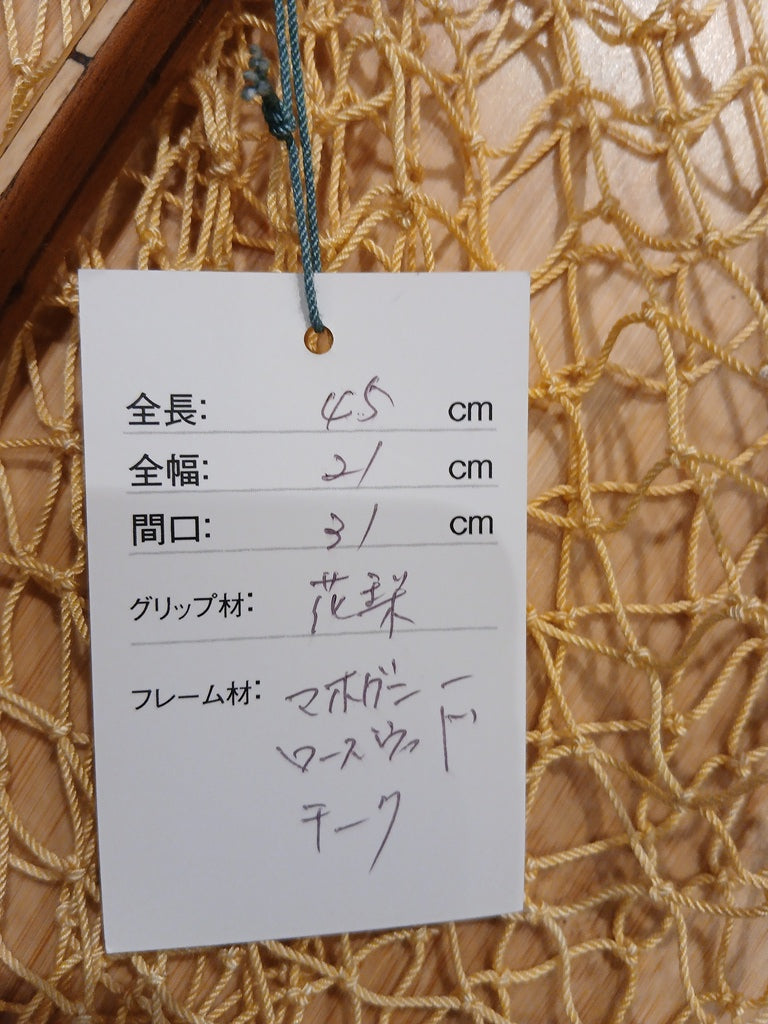 全長: 45 cm
全幅: 21 cm
間口: 31 cm
グリップ材: 花梨
フレーム材: マホガニー
ローズウッド
チーク